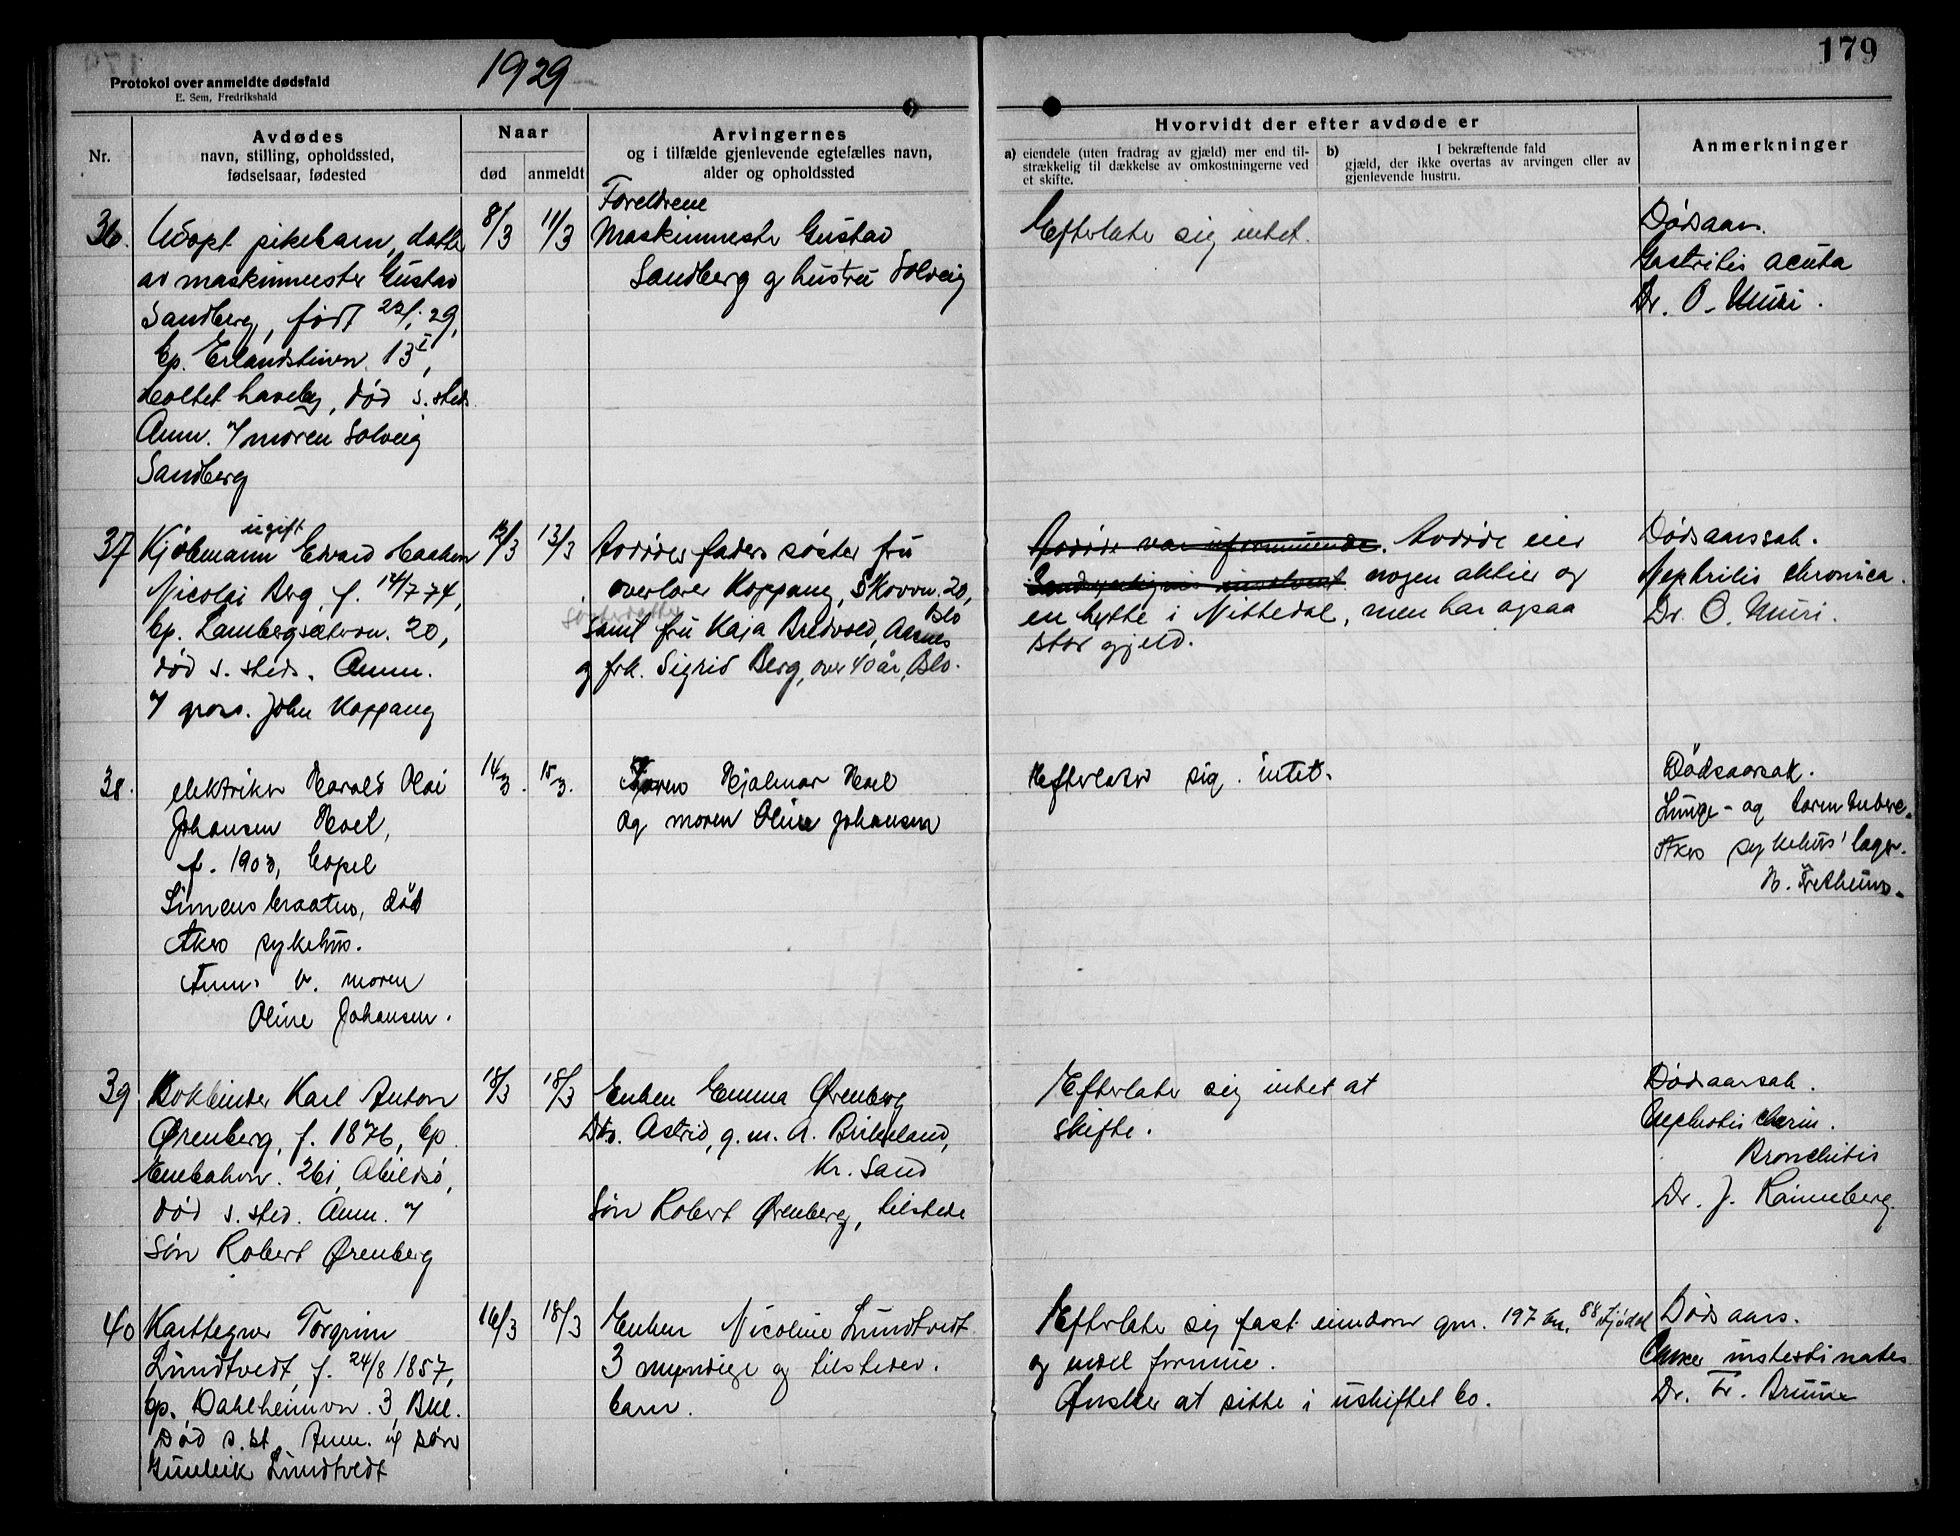 179
Protokol over anmeldte dødsfald
E. Sem, Fredrikshald
1929
Nr.
Avdødes
navn, stilling, opholdssted,
fødselsaar, fødested
Naar
død
anmeldt
Arvingernes
og i tilfælde gjenlevende egtefælles navn,
alder og opholdssted
Hvorvidt der efter avdøde er
a) eiendele (uten fradrag av gjæld) mer end til-
strækkelig til dækkelse av omkostningerne ved
et skifte.
b) I bekræftende fald
gjæld, der ikke overtas av arvingen eller av
gjenlevende hustru.
Anmerkninger
36.
Udøpt pikebarn, datter
av maskinmester Gustav
Sandberg, født 22/1 29,
bp. Erlandstuvn. 13 I,
Holtet haveby, død s. sted.
Anm. v/ moren Solveig
Sandberg
8/3
11/3
Foreldrene
Maskinmester Gustav
Sandberg og hustru Solveig
Efterlater sig intet.
Dødsaars.
Gastritis acuta
Dr. O. Muri.
37
ugift
Kjøbmann Edvard Haakon
Nicolai Berg, f. 14/7 74,
bp. Lambergsæterv. 20,
død s. sted. Anm.
v/ gross. John Koppang
12/3
13/3
Avdødes faders søster fru
overlærer Koppang, Skovvn. 20,
Oslo
samt fru Kaja Bredvold, Aasnes
og frk. Sigrid Berg, over 40 år, Oslo.
Avdøde var uformuende. Avdøde eier
nogen aktier og
en hytte i Nittedal, men har ogsaa
stor gjeld.
Dødsaarsak.
Nephritis chronica.
Dr. O. Muri.
38.
elektriker Harald Olai
Johansen Hoel,
f. 1903, bopel
Simensbraaten, død
Akers sykehus.
Anm. v. moren
Oline Johansen.
14/3.
15/3.
Faren Hjalmar Hoel
og moren Oline Johansen
Efterlater sig intet.
Dødsaarsak.
Lunge- og tarmtuberc.
Akers sykehus' læge.
N. Fretheim.
39
Bokbinder Karl Anton
Ørenberg, f. 1876, bp.
Enebakvn. 261, Abildsø,
død s. sted. Anm. v/
søn Robert Ørenberg
18/3
18/3
Enken Emma Ørenberg
Dtr. Astrid, g. m. A. Birkeland,
Kr. Sand
Søn Robert Ørenberg, tilstede
Efterlater sig intet at
skifte.
Dødsaarsak.
Nephritis chron.
Bronchitis
Dr. J. Ranneberg.
40
Karttegner Torgrim
Lundtvedt, f. 24/8 1857,
bp. Dahlheimvn. 3, Bul.
Død s. st. Anm. v/ søn
Gunleik Lundtvedt
16/3
18/3
Enken Nicoline Lundtvedt
3 myndige og tilstedev.
barn.
Efterlater sig fast eiendom gnr. 197 bn. 88
og endel formue.
Ønsker at sitte i uskiftet bo.
Dødsaars.
Cancer intestinales
Dr. Fr. Bruun